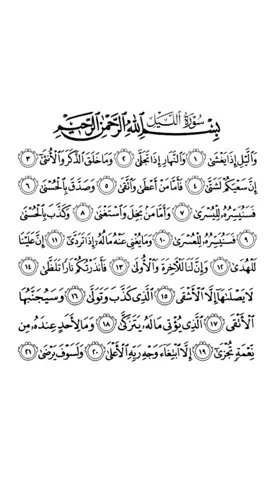 سُورَةُ اللَّيْلِ بِسْمِ اللَّهِ الرَّحْمَٰنِ الرَّحِيمِ
وَاللَّيْلِ إِذَا يَغْشَىٰ ١ وَالنَّهَارِ إِذَا تَجَلَّىٰ ٢ وَمَا خَلَقَ الذَّكَرَ وَالْأُنثَىٰ ٣
إِنَّ سَعْيَكُمْ لَشَتَّىٰ ٤ فَأَمَّا مَنْ أَعْطَىٰ وَاتَّقَىٰ ٥ وَصَدَّقَ بِالْحُسْنَىٰ ٦
فَسَنُيَسِّرُهُ لِلْيُسْرَىٰ ٧ وَأَمَّا مَن بَخِلَ وَاسْتَغْنَىٰ ٨ وَكَذَّبَ بِالْحُسْنَىٰ
٩ فَسَنُيَسِّرُهُ لِلْعُسْرَىٰ ١٠ وَمَا يُغْنِي عَنْهُ مَالُهُ إِذَا تَرَدَّىٰ ١١ إِنَّ عَلَيْنَا
لَلْهُدَىٰ ١٢ وَإِنَّ لَنَا لَلْآخِرَةَ وَالْأُولَىٰ ١٣ فَأَنذَرْتُكُمْ نَارًا تَلَظَّىٰ ١٤
لَا يَصْلَاهَا إِلَّا الْأَشْقَى ١٥ الَّذِي كَذَّبَ وَتَوَلَّىٰ ١٦ وَسَيُجَنَّبُهَا
الْأَتْقَى ١٧ الَّذِي يُؤْتِي مَالَهُ يَتَزَكَّىٰ ١٨ وَمَا لِأَحَدٍ عِندَهُ مِن
نِّعْمَةٍ تُجْزَىٰ ١٩ إِلَّا ابْتِغَاءَ وَجْهِ رَبِّهِ الْأَعْلَىٰ ٢٠ وَلَسَوْفَ يَرْضَىٰ ٢١